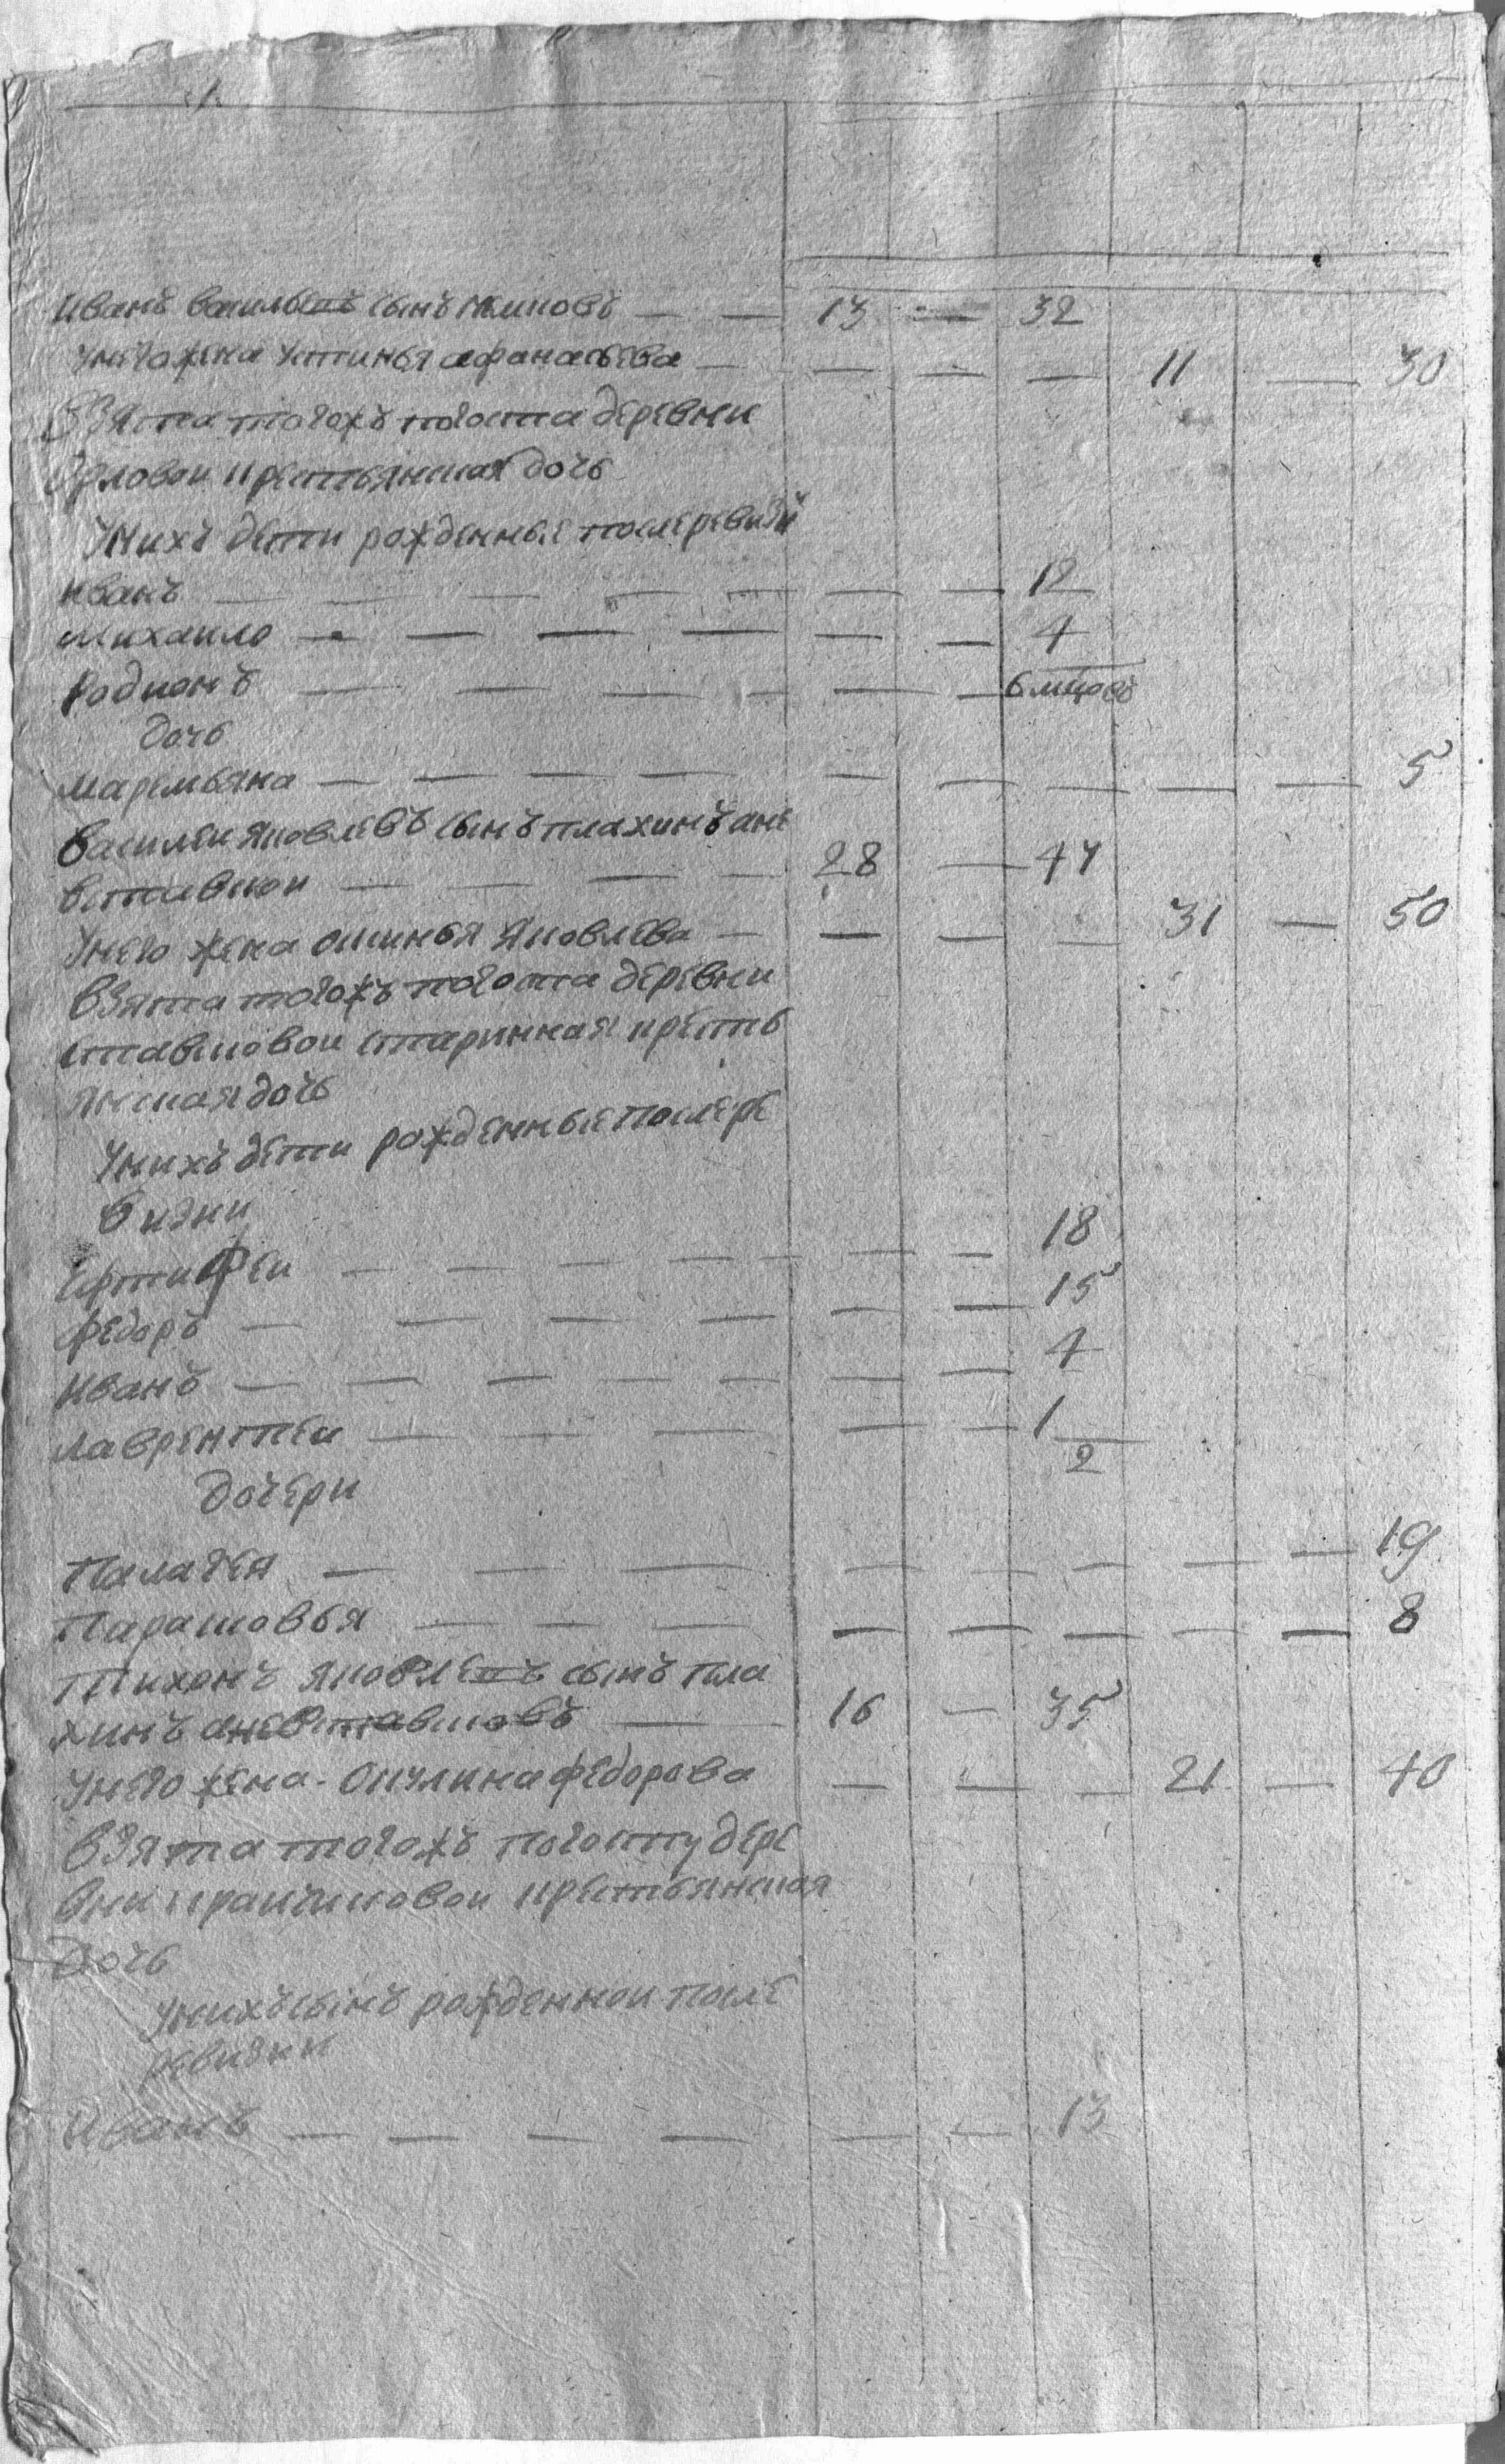 Иванъ васильевъ сынъ — — 13 — 32
унего жена устинья афанасьева — — — — 11 — 30
взята тогожъ погоста деревни
орловои крестьянская дочь
унихъ дети рожденные послеревизiи
иванъ — — — — — — — 12
михаило — — — — — — 4
Родионъ — — — — — — 6 мцовъ
дочь
маремьяна — — — — — — — — — 5
василеи яковлевъ сынъ плахинъ ане
вставской — — — — 28 — 47
унего жена оксинья яковлева — — — — 31 — 50
взята тогожъ погоста деревни
ставшовои старинная кресть
янская дочь
унихъ дети рожденные послере
визии
— — — — — — 18
федоръ — — — — — — — 15
иванъ — — — — — — — 4
лаврентеи — — — — — 1/2
дочери
палагея — — — — — — — — 19
парасковья — — — — — — — — 8
тихонъ яковлевъ сынъ пла
хинъ аневставшовъ — 16 — 35
унего жена акулина федорова — — — 21 — 40
взята тогожъ погосту дере
вни крестьянская
дочь
унихъ сынъ рожденнои после
ревизии
иванъ — — — — — — 13